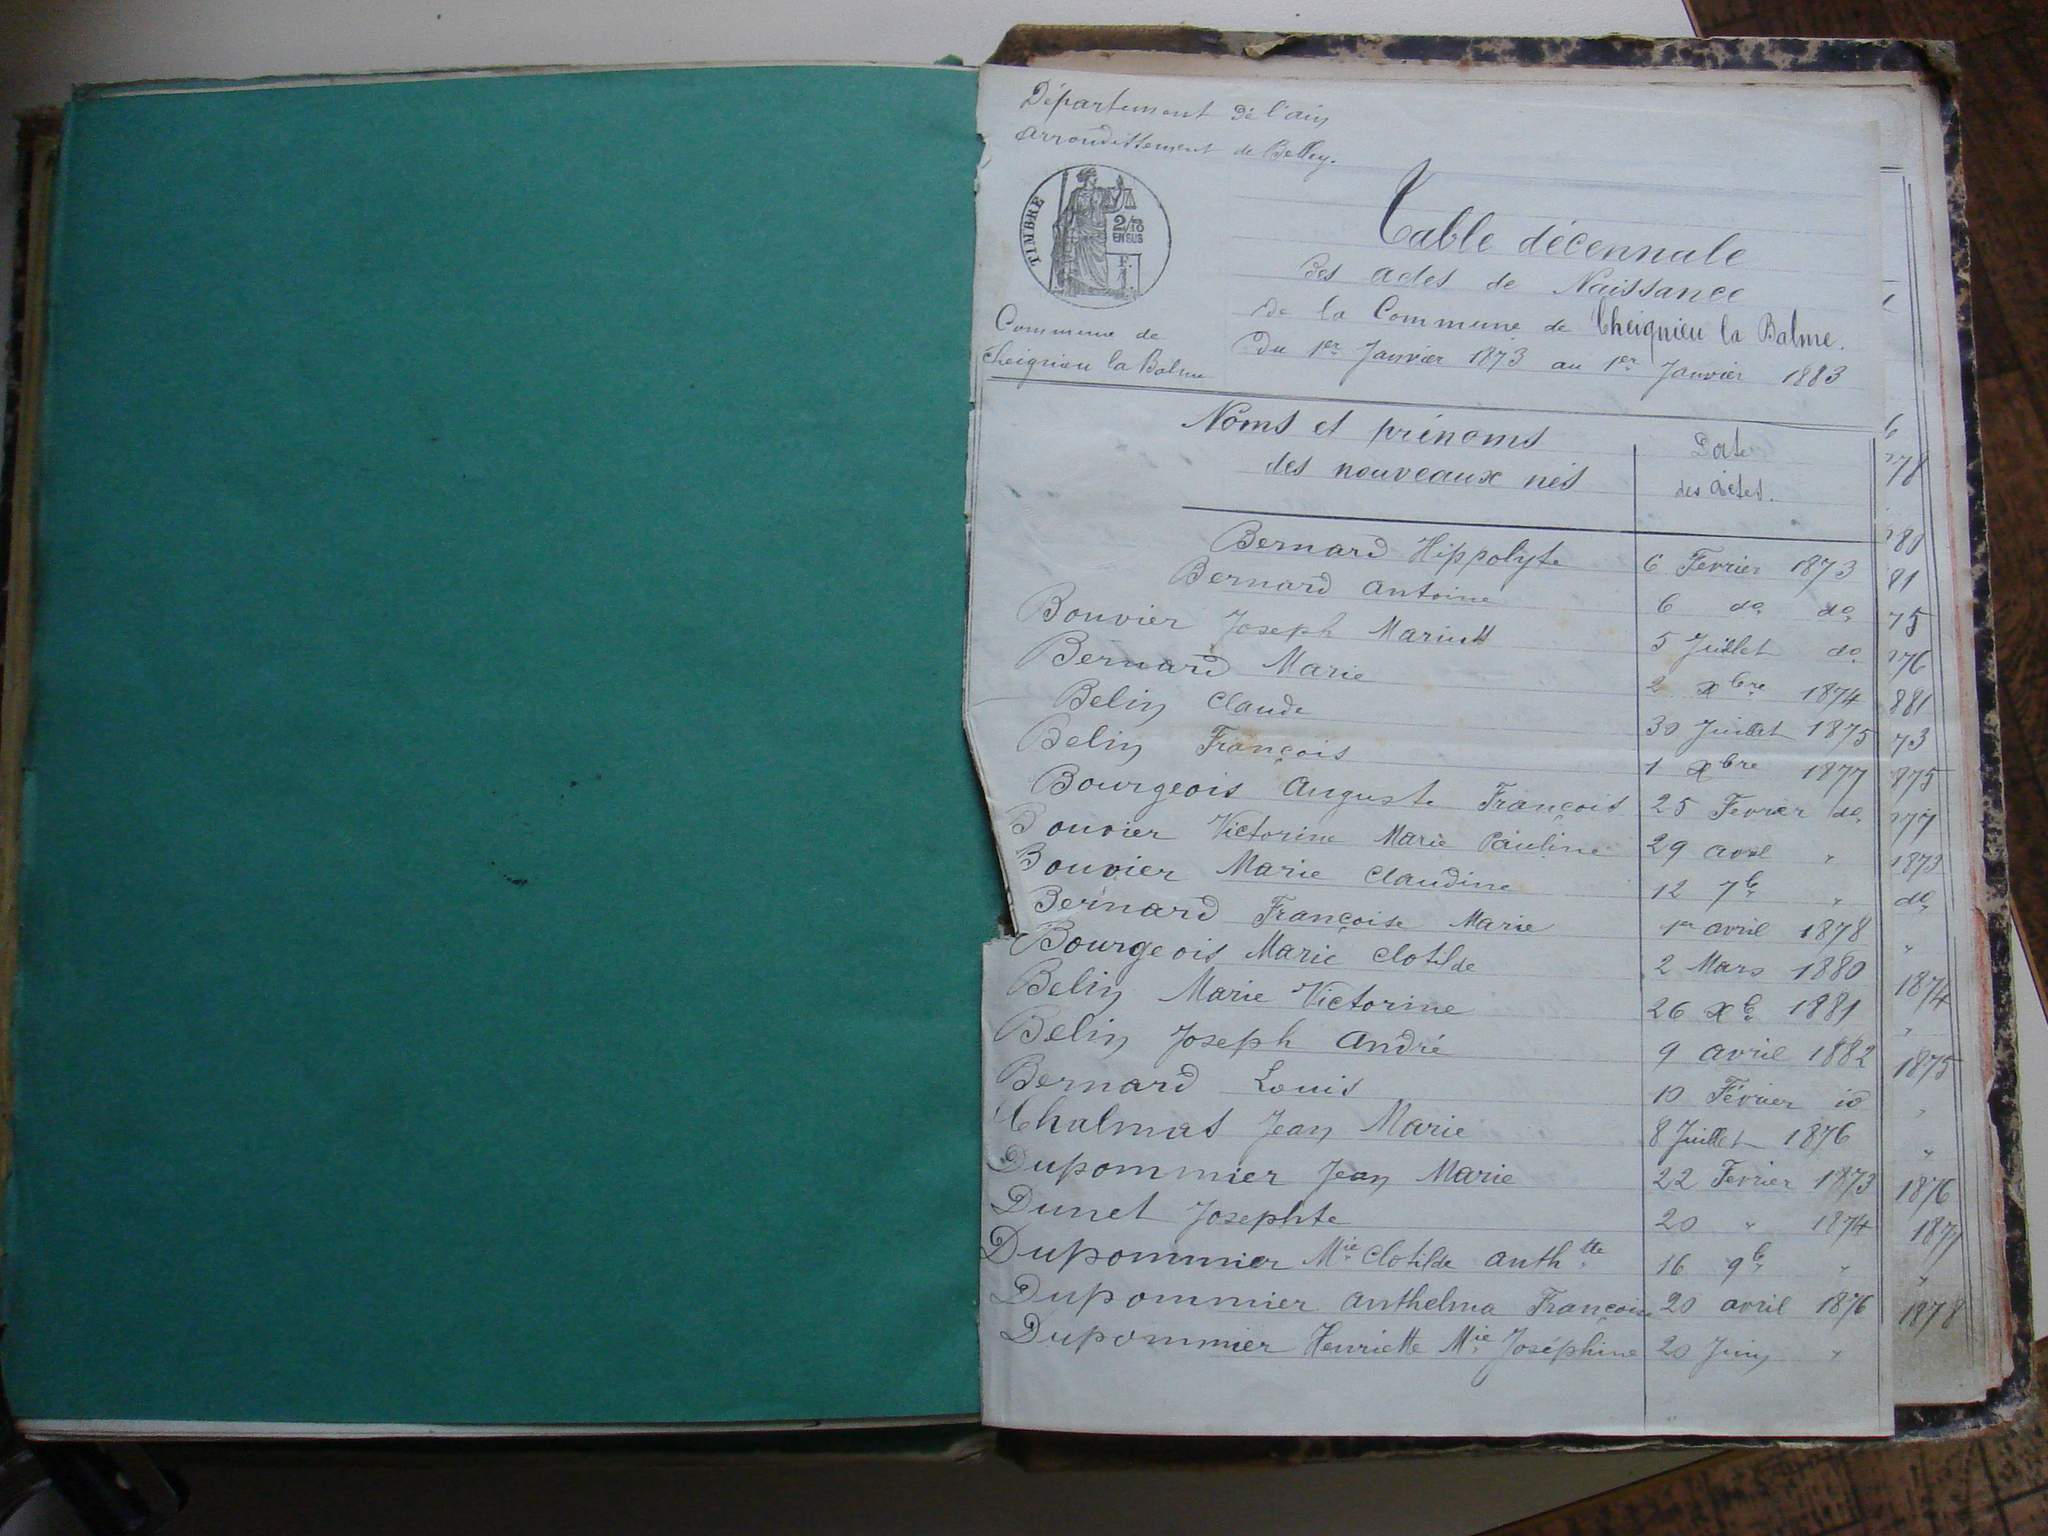 Département de l'ain
arrondissement de Belley.
TIMBRE
2/10
EN SUS
Commune de
Cheignieu la Balme
Table décennale
des actes de Naissance
de la Commune de Cheignieu la Balme.
du 1er Janvier 1873 au 1er Janvier 1883
Noms et prénoms Date
des nouveaux nés des actes.
Bernard Hippolyte 6 Fevrier 1873
Bernard antoine 6 do do
Bouvier Joseph Marius 5 Juillet do
Bernard Marie 2 xbre 1874
Belin Claude 30 Juillet 1875
Belin François 1 xbre 1877
Bourgeois Auguste François 25 Fevrier do
Bouvier Victorine Marie Pauline 29 avril "
Bouvier Marie Claudine 12 7b "
Bernard Françoise Marie 1er avril 1878
Bourgeois Marie Clotilde 2 Mars 1880
Belin Marie Victorine 26 xb 1881
Belin Joseph André 9 avril 1882
Bernard Louis 10 Février id
Chalmas Jean Marie 8 Juillet 1876
Dupommier Jean Marie 22 Fevrier 1873
Dunet Josephte 20 " 1874
Dupommier Mie Clotilde anthtte 16 9b "
Dupommier anthelma Françoise 20 avril 1876
Dupommier Henriette Mie Joséphine 20 Juin "
78
80
81
75
76
881
73
875
77
1873
do
"
1874
"
1875
"
"
1876
1877
"
1878